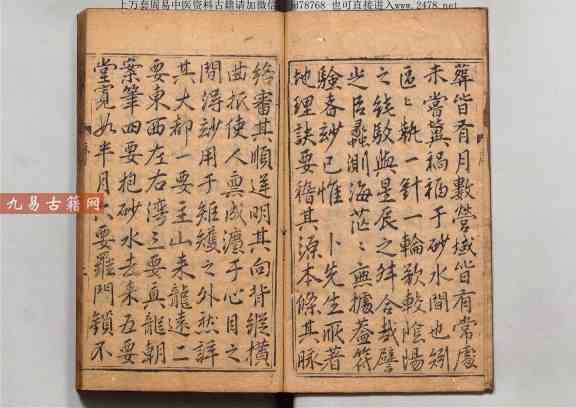 上万套周易中医资料古籍请加微信78768 也可直接进入www.2478.net
葬皆有月數營域皆有常處
未嘗冀禍福于砂水間也矧
區〻執一針一輪欲較陰陽
之駁與星辰之合哉譬
之蠡測海茫〻無據蓋符
驗已惟卜先生所著
地理訣要稽其源本條其脉
絡審其順逆明其向背縱橫
曲折使人成于心目之
間得玅用于矩矱之外然詳
其大都一要主山来龍遠二
要東西左右湾三要真龍朝
案筆四要抱砂水去来五要
堂寬如半月六要羅門鎖不
九易古籍网